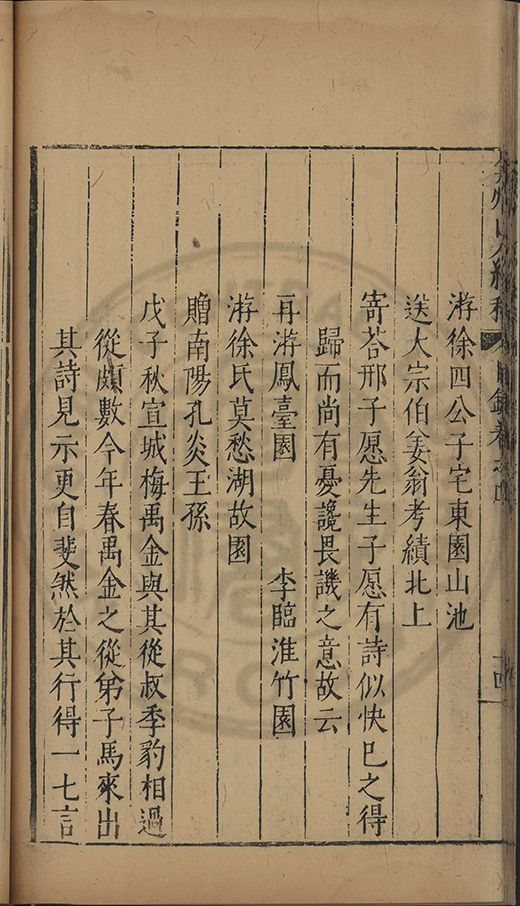 游徐四公子宅東園山池
送大宗伯姜翁考績北上
寄荅邢子愿先生子愿有詩似快巳之得
歸而尚有憂讒畏譏之意故云
再游鳳臺園　李臨淮竹園
游徐氏莫愁湖故園
贈南陽孔炎王孫
戊子秋宣城梅禹金與其從叔季豹相過
從頗數今年春禹金之從弟子馬來出
其詩見示更自斐然於其行得一七言